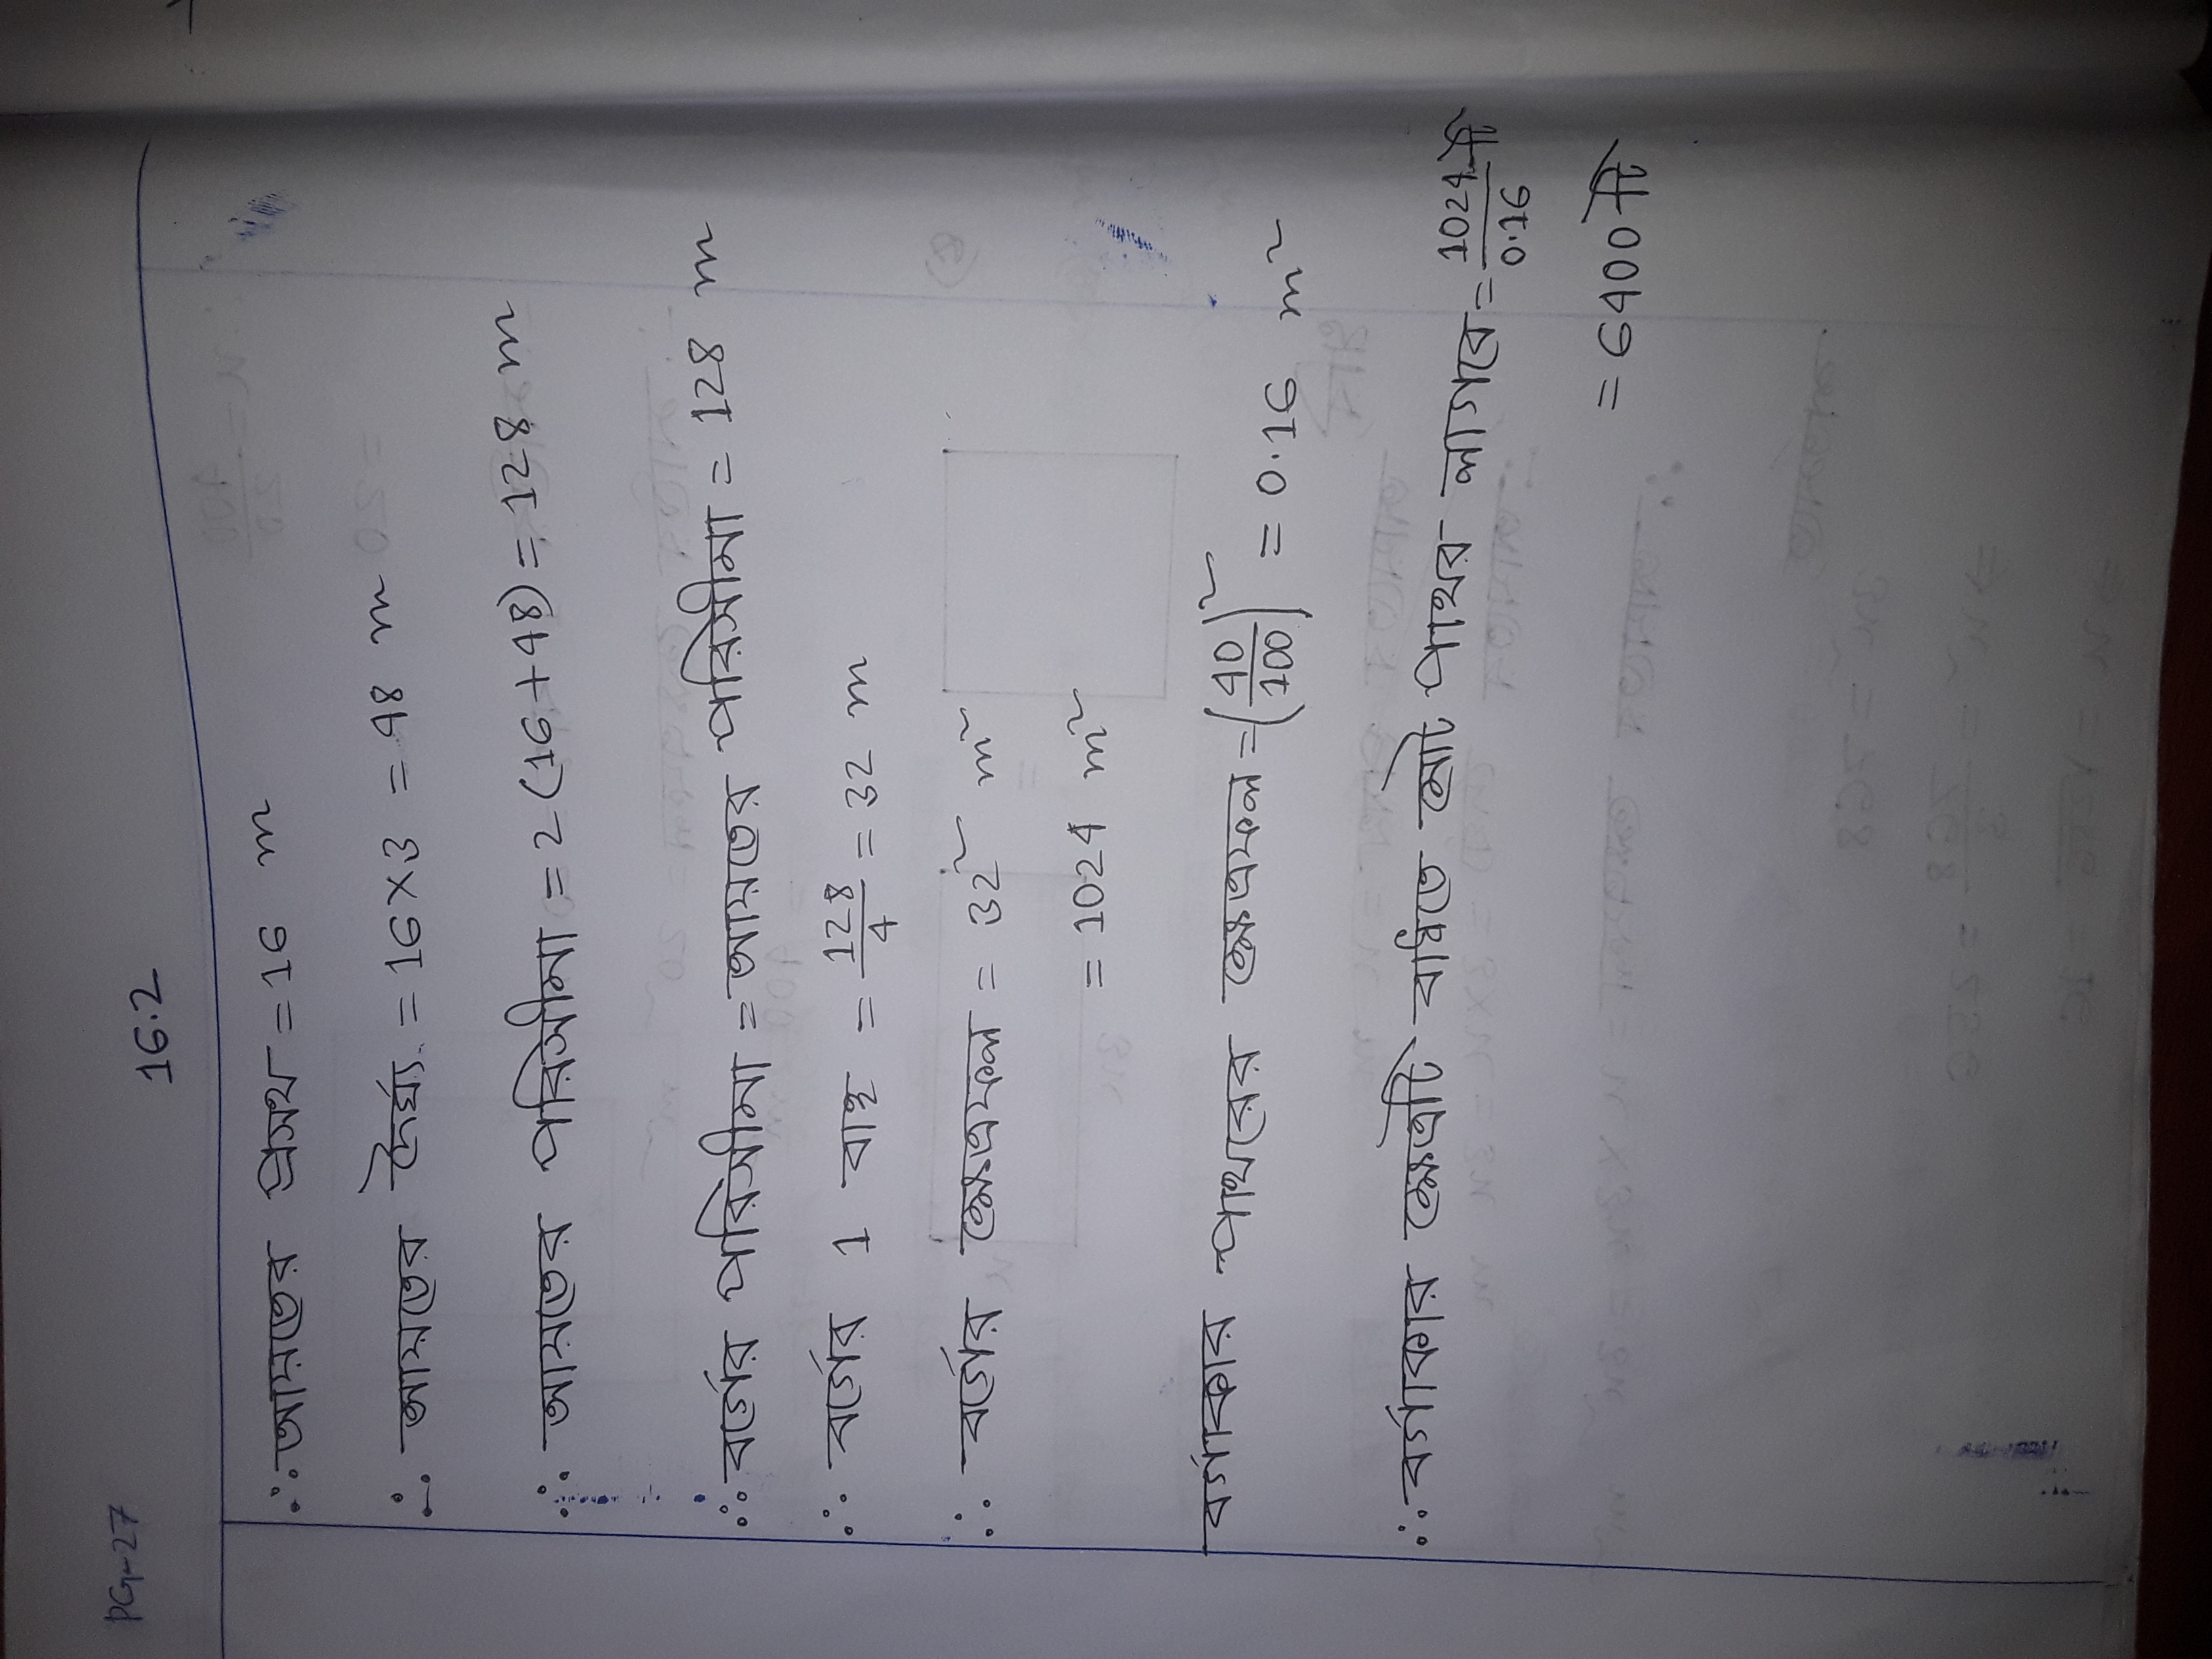 PG-27
16.2
∴ আয়তের প্রসথ = 16 m
∴ আয়তের দৈর্ঘ্য = 16 × 3 = 48 m
∴ আয়তের পরিসীমা = 2 (16 + 48) = 128 m
∴ বর্গের পরিসীমা = আয়তের পরিসীমা = 128 m
∴ বর্গের 1 বাহু = 128/4 = 32 m
∴ বর্গের ক্ষেত্রফল = 32² m²
= 1024 m²
বর্গাকার পাথরের ক্ষেত্রফল = (40/100)² = 0.16 m²
∴ বর্গাকার ক্ষেত্রটি বাঁধতে মোট পাথর লাগবে = 1024/0.16 টি
= 6400 টি